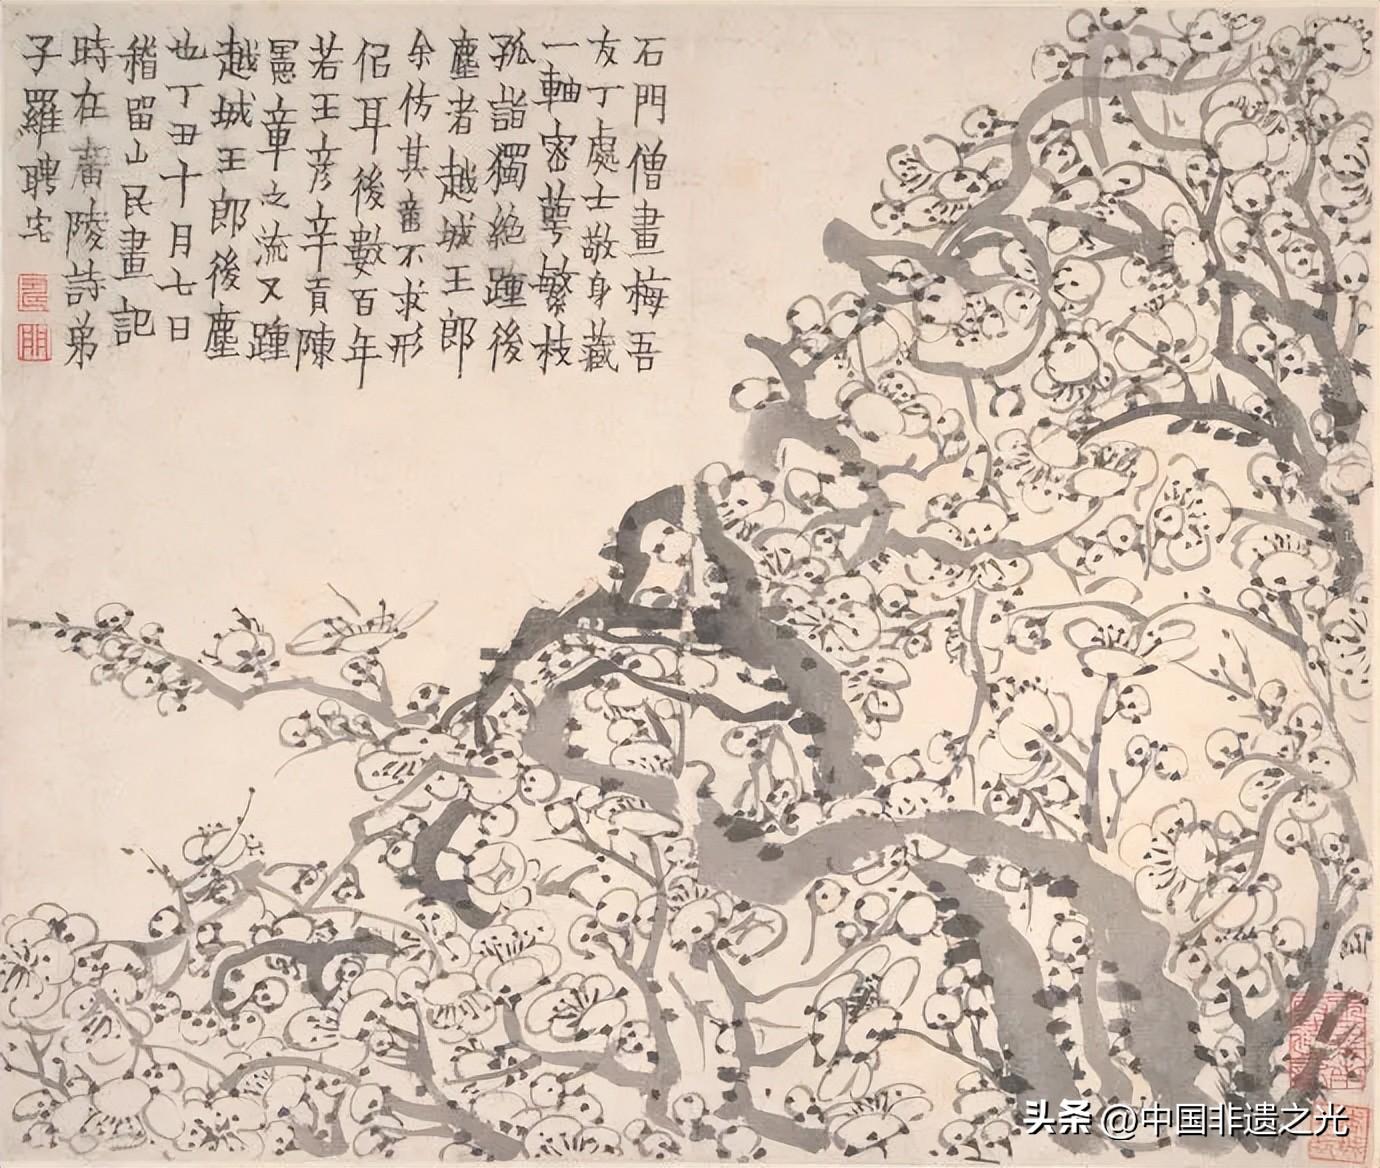 石門僧畫梅吾
友丁處士敬身藏
一軸密萼繁枝
孤詣獨絕踵後
塵者越城王郎
余仿其意不求形
侣耳後數百年
若王彦辛貢陳
憲章之流又踵
越城王郎後塵
也丁丑十月七日
稽留山民畫記
時在廣陵詩弟
子羅聘
头条 @中国非遗之光